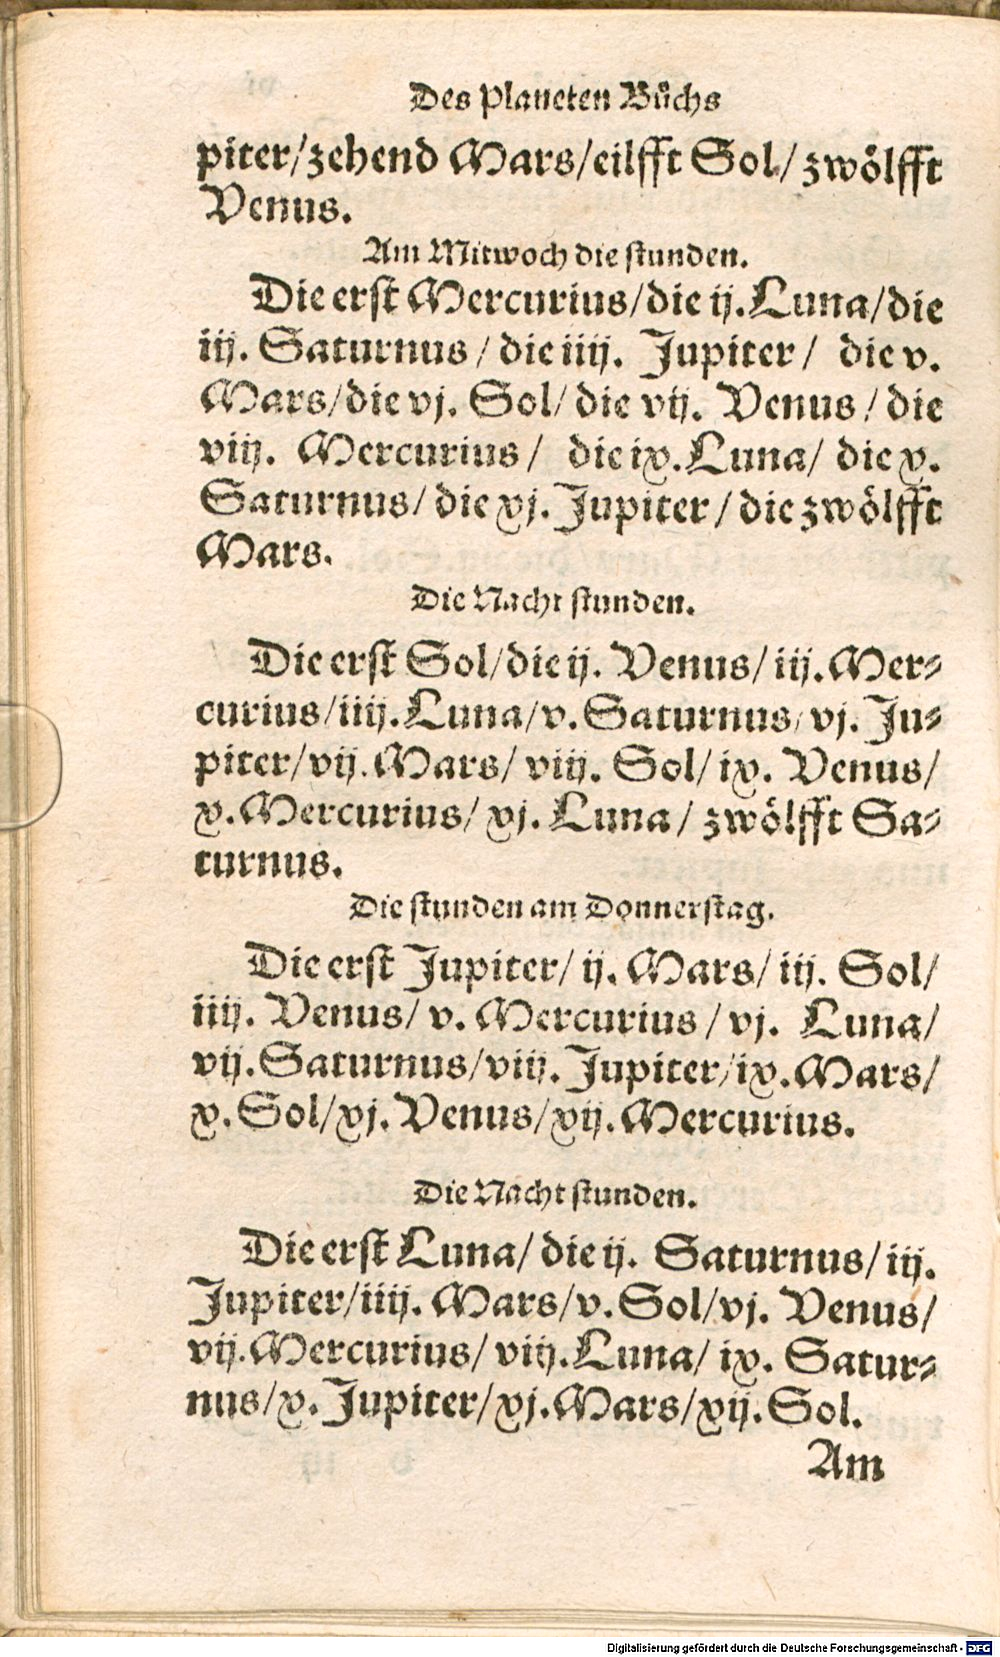 Des Planeten Bůchs
piter/zehend Mars/eilfft Sol/zwölfft
Venus.
Am Mitwoch die stunden.
Die erst Mercurius/die ij.Luna/die
iij. Saturnus/die iiij. Jupiter/ die v.
Mars/die vj. Sol/die vij. Venus/die
viij. Mercurius/ die ix.Luna/ die x.
Saturnus/die xj. Jupiter/die zwölfft
Mars.
Die Nacht stunden.
Die erst Sol/die ij. Venus/iij.Mer⸗
curius/iiij.Luna/v.Saturnus/vj. Ju⸗
piter/vij.Mars/viij. Sol/ix. Venus/
x.Mercurius/xj.Luna/zwölfft Sa⸗
turnus.
Die stunden am Donnerstag.
Die erst Jupiter/ij. Mars/iij. Sol/
iiij. Venus/v. Mercurius/vj. Luna/
vij.Saturnus/viij. Jupiter/ix.Mars/
x.Sol/xj.Venus/xij.Mercurius.
Die Nacht stunden.
Die erst Luna/die ij. Saturnus/iij.
Jupiter/iiij. Mars/v.Sol/vj. Venus/
vij.Mercurius/viij.Luna/ix. Satur⸗
nus/x. Jupiter/xj.Mars/xij.Sol.
Am
Digitalisierung gefördert durch die Deutsche Forschungsgemeinschaft - DFG